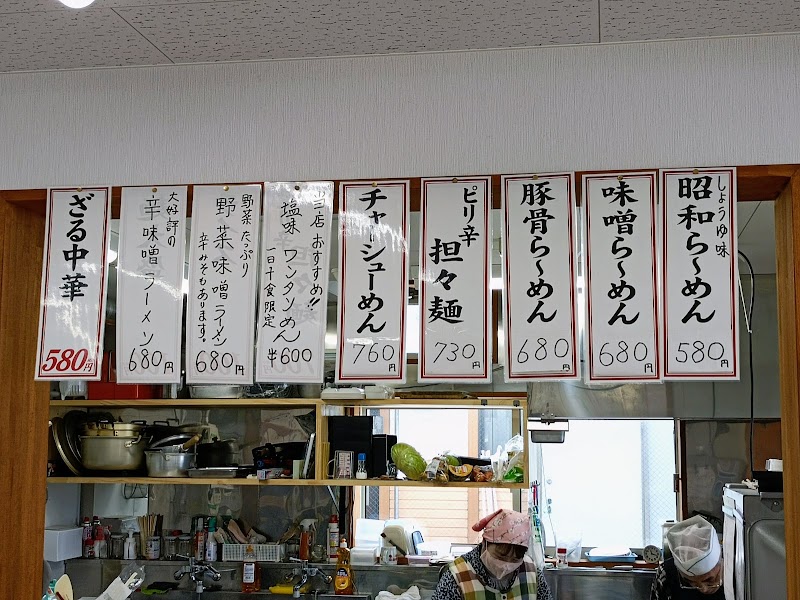 しょうゆ味
昭和ら〜めん
580円
味噌ら〜めん
680円
豚骨ら〜めん
680円
ピリ辛
担々麺
730円
チャーシューめん
760円
当店おすすめ!!
塩味ワンタンめん
一日十食限定
¥600
野菜たっぷり
野菜味噌ラーメン
辛みそもあります。
680円
大好評の
辛味噌ラーメン
680円
ざる中華
580円